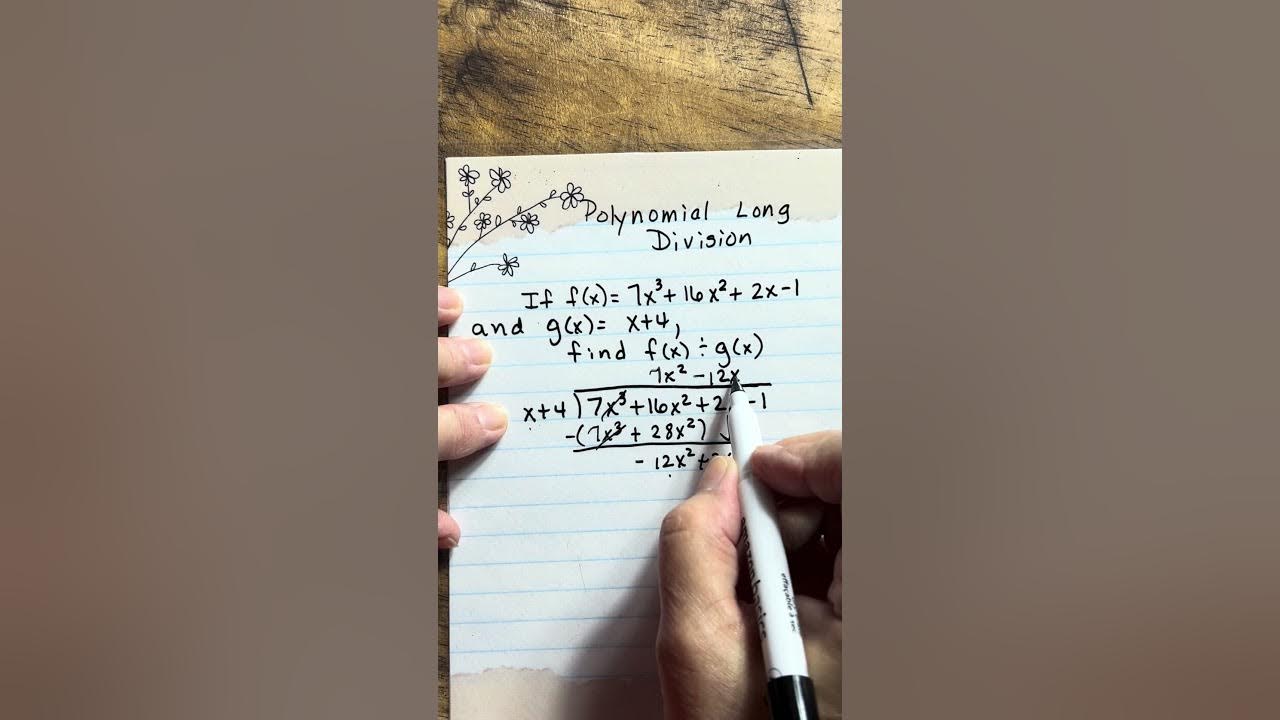 Polynomial Long
Division
If f(x) = 7x³ + 16x² + 2x - 1
and g(x) = x+4,
find f(x) ÷ g(x)
7x² - 12x
x+4 ) 7x³ + 16x² + 2 - 1
-(7x³ + 28x²)
- 12x² +